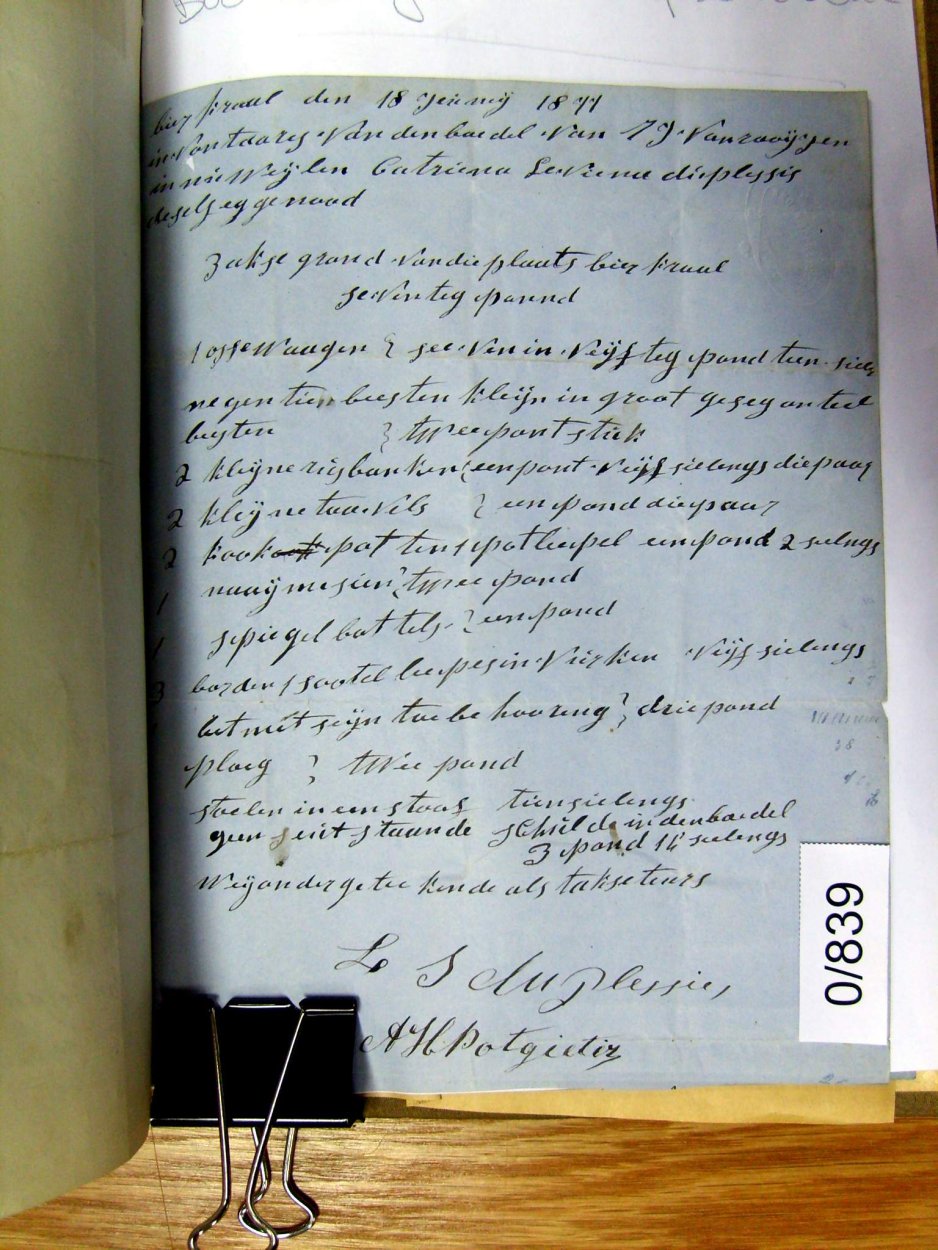 bierkraal den 18 Jeinnij 1871
in Vontaares Van den boedel Van J J Vanrooijen
in nu Weijlen Catriena Le Viena dieplessis
deselfs eggenood
3 akse grond van die plaats bierkraal
seventeg pound
1 osse Waagen } see Ven in Veijfteg pond tien siel
negentien beesten kleijn in groot
besten } twee pont stuk
2 kleijne rijsbanken } een pont Veijf sielengs die paar
2 kleijne taavils } een pond die paar
2 kook pot ten 1 potleepel eenpond 2 sielengs
1 naaij mesien } twee pond
1 spiegel bottels } eenpond
3 borden 1 sootel leepes in Vurken Veijf sielengs
met seijn toebehooreng } drie pond
ploeg } twee pond
stoelen in een stoof tien sielengs
geen seitstaande schulde in den boedel
3 pond 14 sielengs
Weij ondergeteekende als takseteurs
L J duPlessies
A H Potgieter
0/839